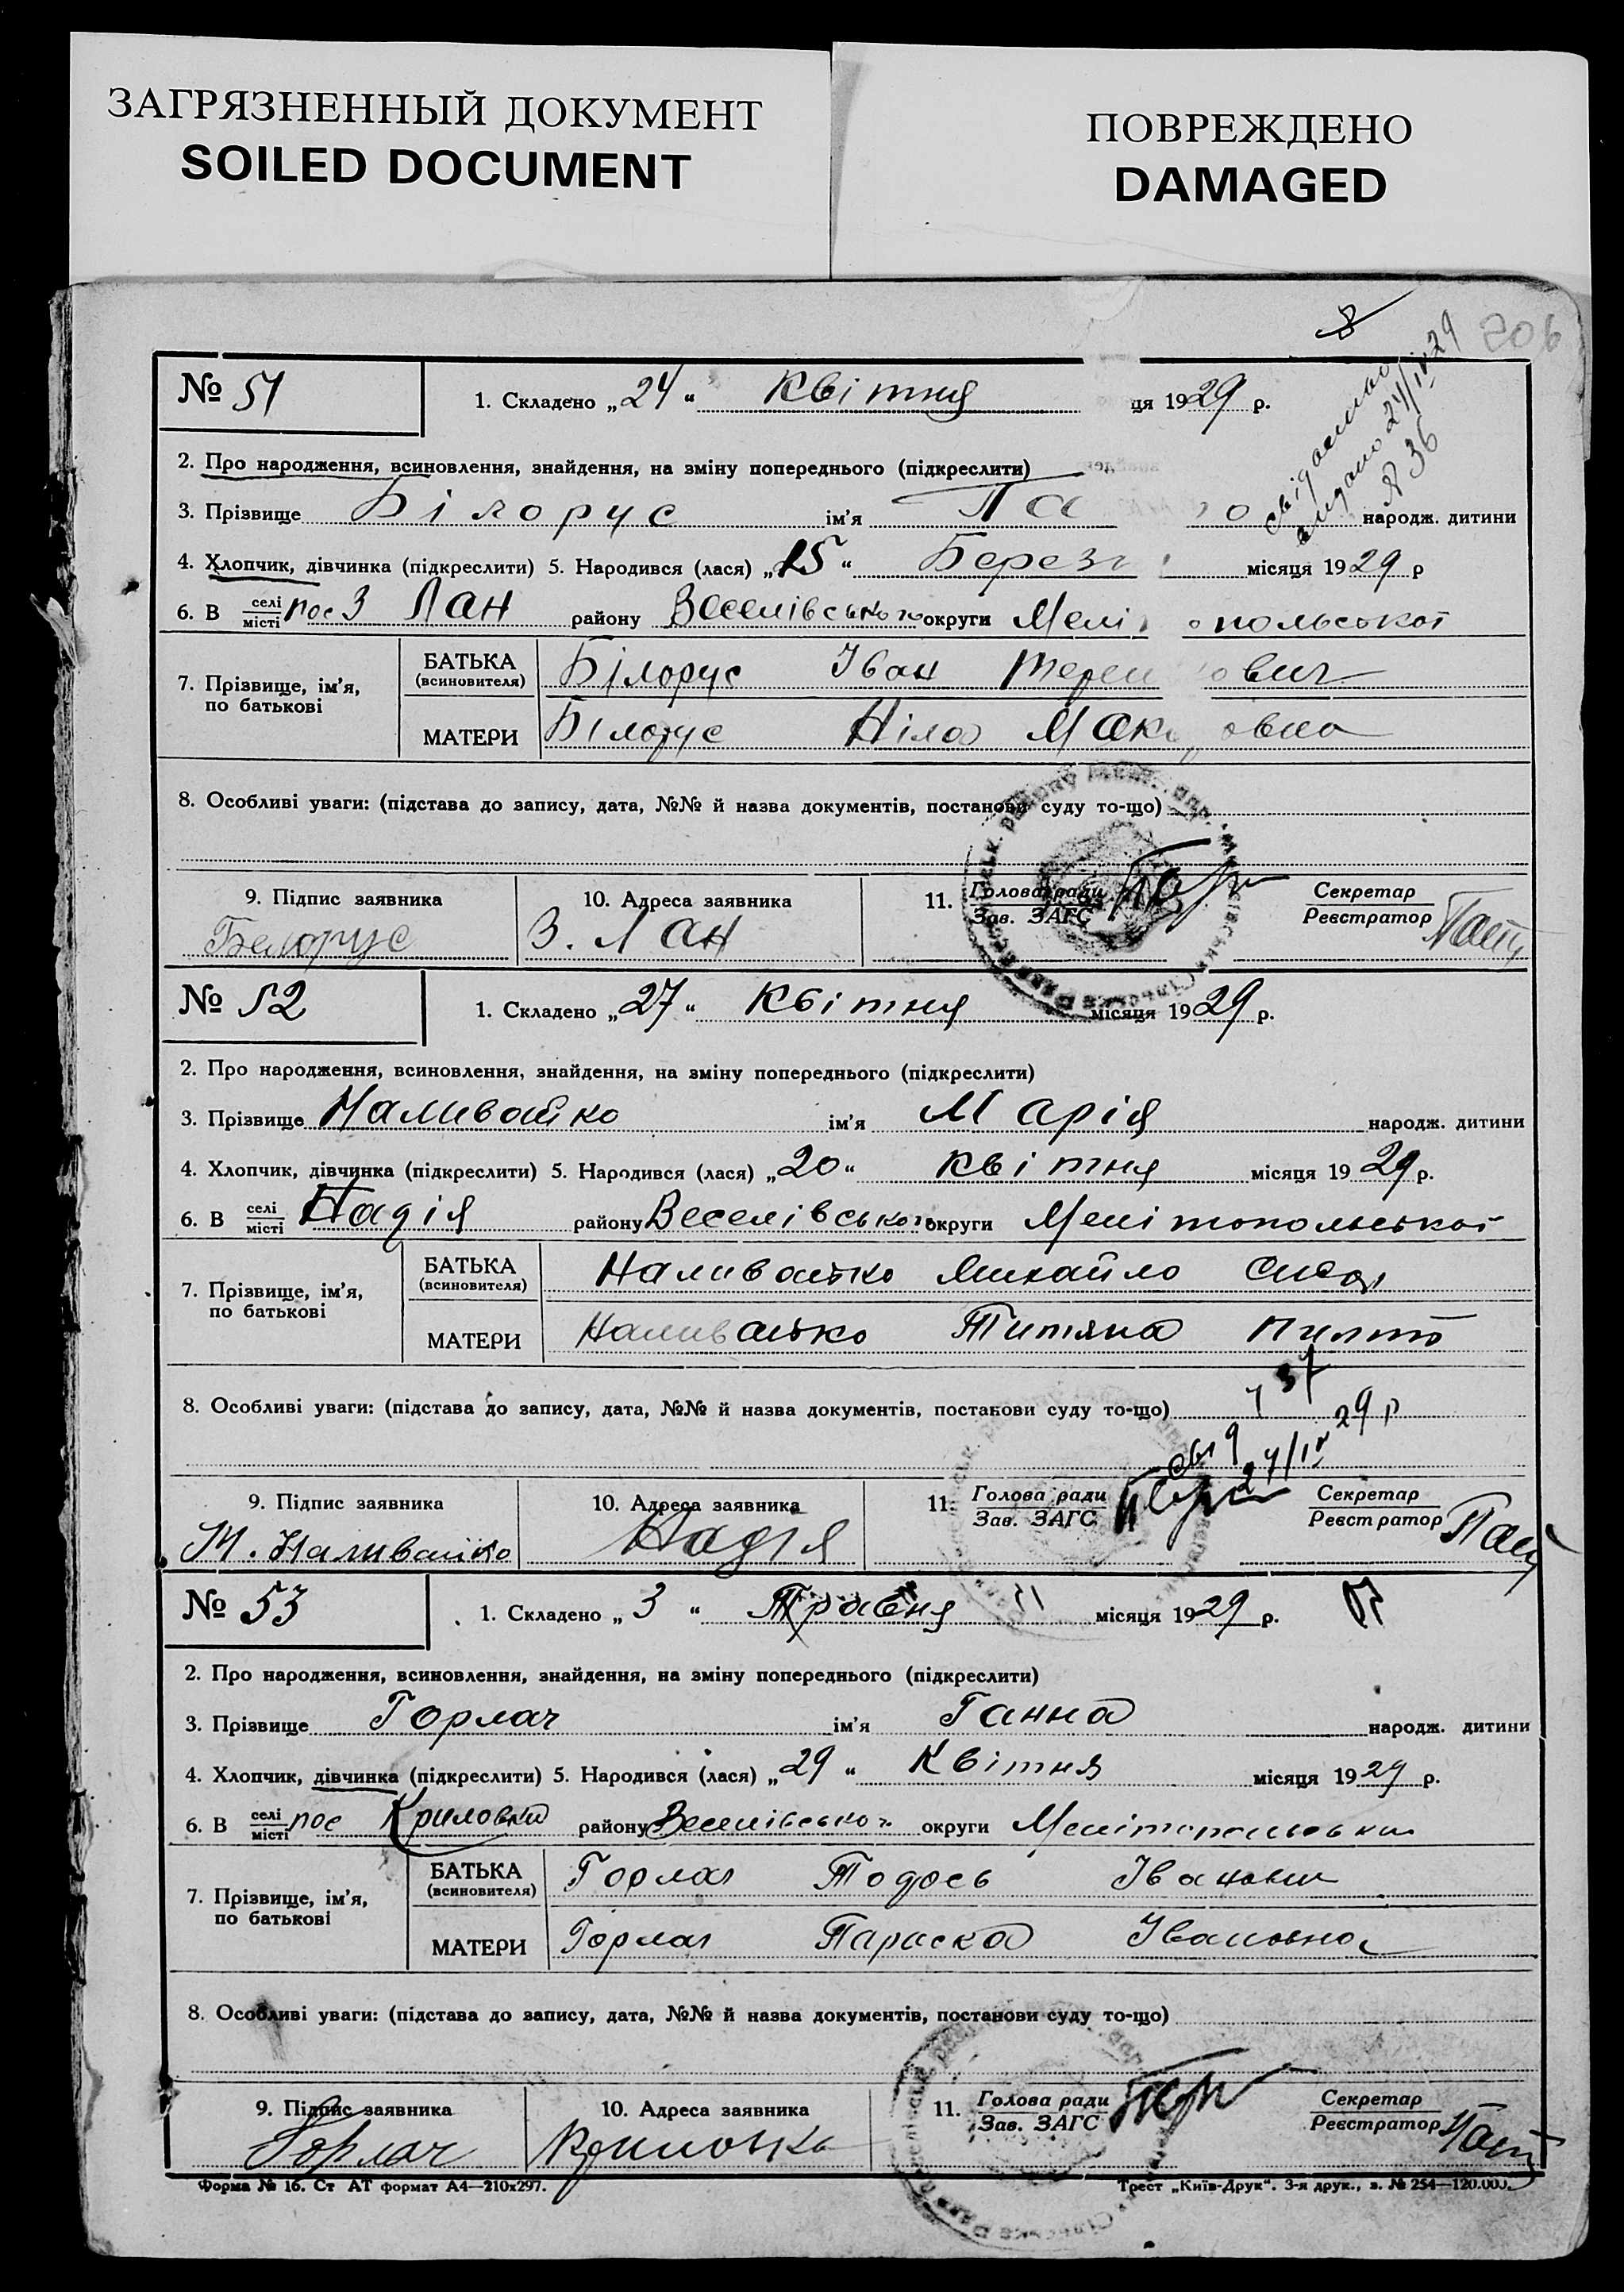 ЗАГРЯЗНЕННЫЙ ДОКУМЕНТ
SOILED DOCUMENT
ПОВРЕЖДЕНО
DAMAGED
8
206
№ 51
1. Складено „24“ Квітня ця 1929 р.
видано 24/IV 29
№ 36
2. Про народження, всиновлення, знайдення, на зміну попереднього (підкреслити)
3. Прізвище Білорус ім'я Па о народж. дитини
4. Хлопчик, дівчинка (підкреслити) 5. Народився (лася) „15“ Берез місяця 1929 р
6. В селі/місті пос З Лан району Веселівського округи Меліопольської
7. Прізвище, ім'я, по батькові
БАТЬКА (всиновителя) Білорус Іван Терен ович
МАТЕРИ Білорус Ніла Мак овна
8. Особливі уваги: (підстава до запису, дата, №№ й назва документів, постанови суду то-що)
9. Підпис заявника 10. Адреса заявника 11. Голова ради/Зав. ЗАГС Секретар/Реєстратор
Белорус З. Лан
№ 52
1. Складено „27“ Квітня місяця 1929 р.
2. Про народження, всиновлення, знайдення, на зміну попереднього (підкреслити)
3. Прізвище Наливайко ім'я Марія народж. дитини
4. Хлопчик, дівчинка (підкреслити) 5. Народився (лася) „20“ квітня місяця 1929 р.
6. В селі/місті Надія району Веселівського округи Мелітопольської
7. Прізвище, ім'я, по батькові
БАТЬКА (всиновителя) Наливайко Михайло
МАТЕРИ Наливайко Титяна
37
8. Особливі уваги: (підстава до запису, дата, №№ й назва документів, постанови суду то-що)
27/IV 29 р
9. Підпис заявника 10. Адреса заявника 11. Голова ради/Зав. ЗАГС Секретар/Реєстратор
М. Наливайко Надія
№ 53
1. Складено „3“ Травня місяця 1929 р.
2. Про народження, всиновлення, знайдення, на зміну попереднього (підкреслити)
3. Прізвище Горлач ім'я Ганна народж. дитини
4. Хлопчик, дівчинка (підкреслити) 5. Народився (лася) „29“ Квітня місяця 1929 р.
6. В селі/місті пос Криловка району Веселівського округи Мелітопольськ
7. Прізвище, ім'я, по батькові
БАТЬКА (всиновителя) Горлач Тодось Іванович
МАТЕРИ Горлач Параска Івановна
8. Особливі уваги: (підстава до запису, дата, №№ й назва документів, постанови суду то-що)
9. Підпис заявника 10. Адреса заявника 11. Голова ради/Зав. ЗАГС Секретар/Реєстратор
Горлач Криловка
Форма № 16. Ст АТ формат А4—210х297.
Трест „Київ-Друк“. 3-я друк., з. № 254—120.000.